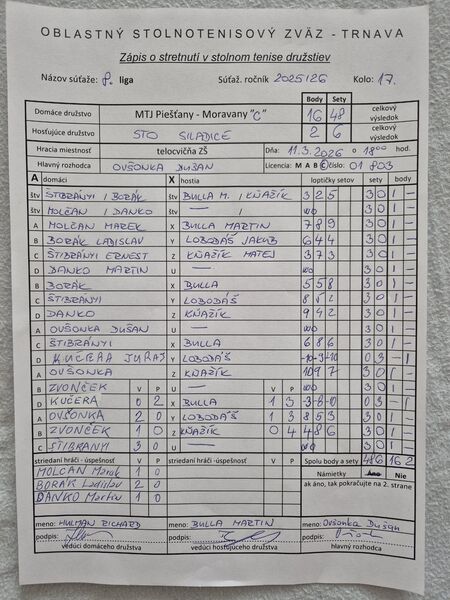 OBLASTNÝ STOLNOTENISOVÝ ZVÄZ - TRNAVA
Zápis o stretnutí v stolnom tenise družstiev
Názov súťaže: 8. liga Súťaž. ročník 2025/26 Kolo: 17.
Body Sety
Domáce družstvo MTJ Piešťany - Moravany "C" 16 48 celkový výsledok
Hosťujúce družstvo STO SILADICE 2 6 celkový výsledok
Hracia miestnosť telocvičňa ZŠ Dňa: 11.3.2026 o 1800 hod.
Hlavný rozhodca OVŠONKA DUŠAN Licencia: M A B C číslo: 01 803
A domáci X hostia loptičky setov sety body
štv ŠTIBRÁNYI / BORÁK štv BULLA M. / KŇAŽÍK 3 2 5 3 0 1 -
štv MOLČAN / DANKO štv — / wo 3 0 1 -
A MOLČAN MAREK X BULLA MARTIN 7 8 9 3 0 1 -
B BORÁK LADISLAV Y LOBODÁŠ JAKUB 6 4 4 3 0 1 -
C ŠTIBRÁNYI ERNEST Z KŇAŽÍK MATEJ 3 7 3 3 0 1 -
D DANKO MARTIN U — wo 3 0 1 -
B BORÁK X BULLA 5 5 8 3 0 1 -
C ŠTIBRÁNYI Y LOBODÁŠ 8 2 3 0 1 -
D DANKO Z KŇAŽÍK 9 4 2 3 0 1 -
A OVŠONKA DUŠAN U — wo 3 0 1 -
C ŠTIBRÁNYI X BULLA 6 8 6 3 0 1 -
D KUČERA JURAJ Y LOBODÁŠ -10 -9 -10 0 3 - 1
A OVŠONKA Z KŇAŽÍK 10 9 7 3 0 1 -
B ZVONČEK V P U — V P wo 3 0 1 -
D KUČERA 0 2 X BULLA 1 3 -3 -8 -10 0 3 - 1
A OVŠONKA 2 0 Y LOBODÁŠ 1 3 8 5 3 3 0 1 -
B ZVONČEK 1 0 Z KŇAŽÍK 0 4 4 8 6 3 0 1 -
C ŠTIBRANYI 3 0 U — wo 3 0 1 -
striedaní hráči - úspešnosť V P striedaní hráči - úspešnosť V P Spolu body a sety 48 6 16 2
MOLČAN Marek 1 0 Námietky Nie
BORÁK Ladislav 2 0 ak áno, tak pokračujte na 2. strane
DANKO Martin 1 0
meno: HULMAN RICHARD meno: BULLA MARTIN meno: Ovšonka Dušan
podpis: podpis: podpis:
vedúci domáceho družstva vedúci hosťujúceho družstva hlavný rozhodca